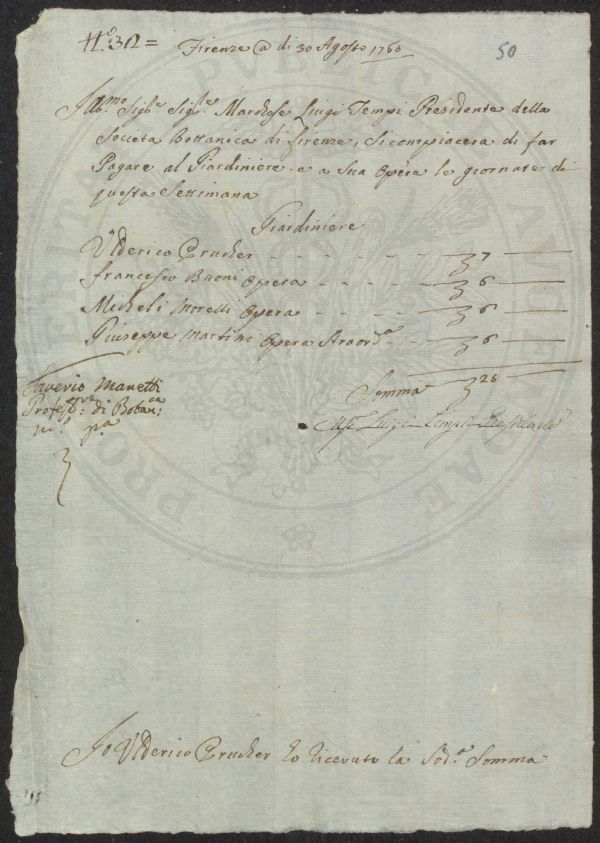 N.° 312 = Firenze @ di 30 Agosto 1760
50
Ill.mo Sig.re Sig.re Marchese Luigi Tempi Presidente della
Societa Bottanica di firenze, si compiacerà di far
Pagare al Giardiniere e a Sua Opera le giornate di
questa Settimana
Giardiniere
Ulderico Prucker - - - - - 7
Francesco Buoni Opera - - - - 6
Micheli Morelli Opera - - - - 6
Giuseppe Martini Opera Straord.a - - 6
Somma 25
Saverio Manetti
Profess.re di Botan.ca
m.o p.a
Mse. Luigi Tempi Presidente
Io Ulderico Prucker ho ricevuto la Sod.a Somma